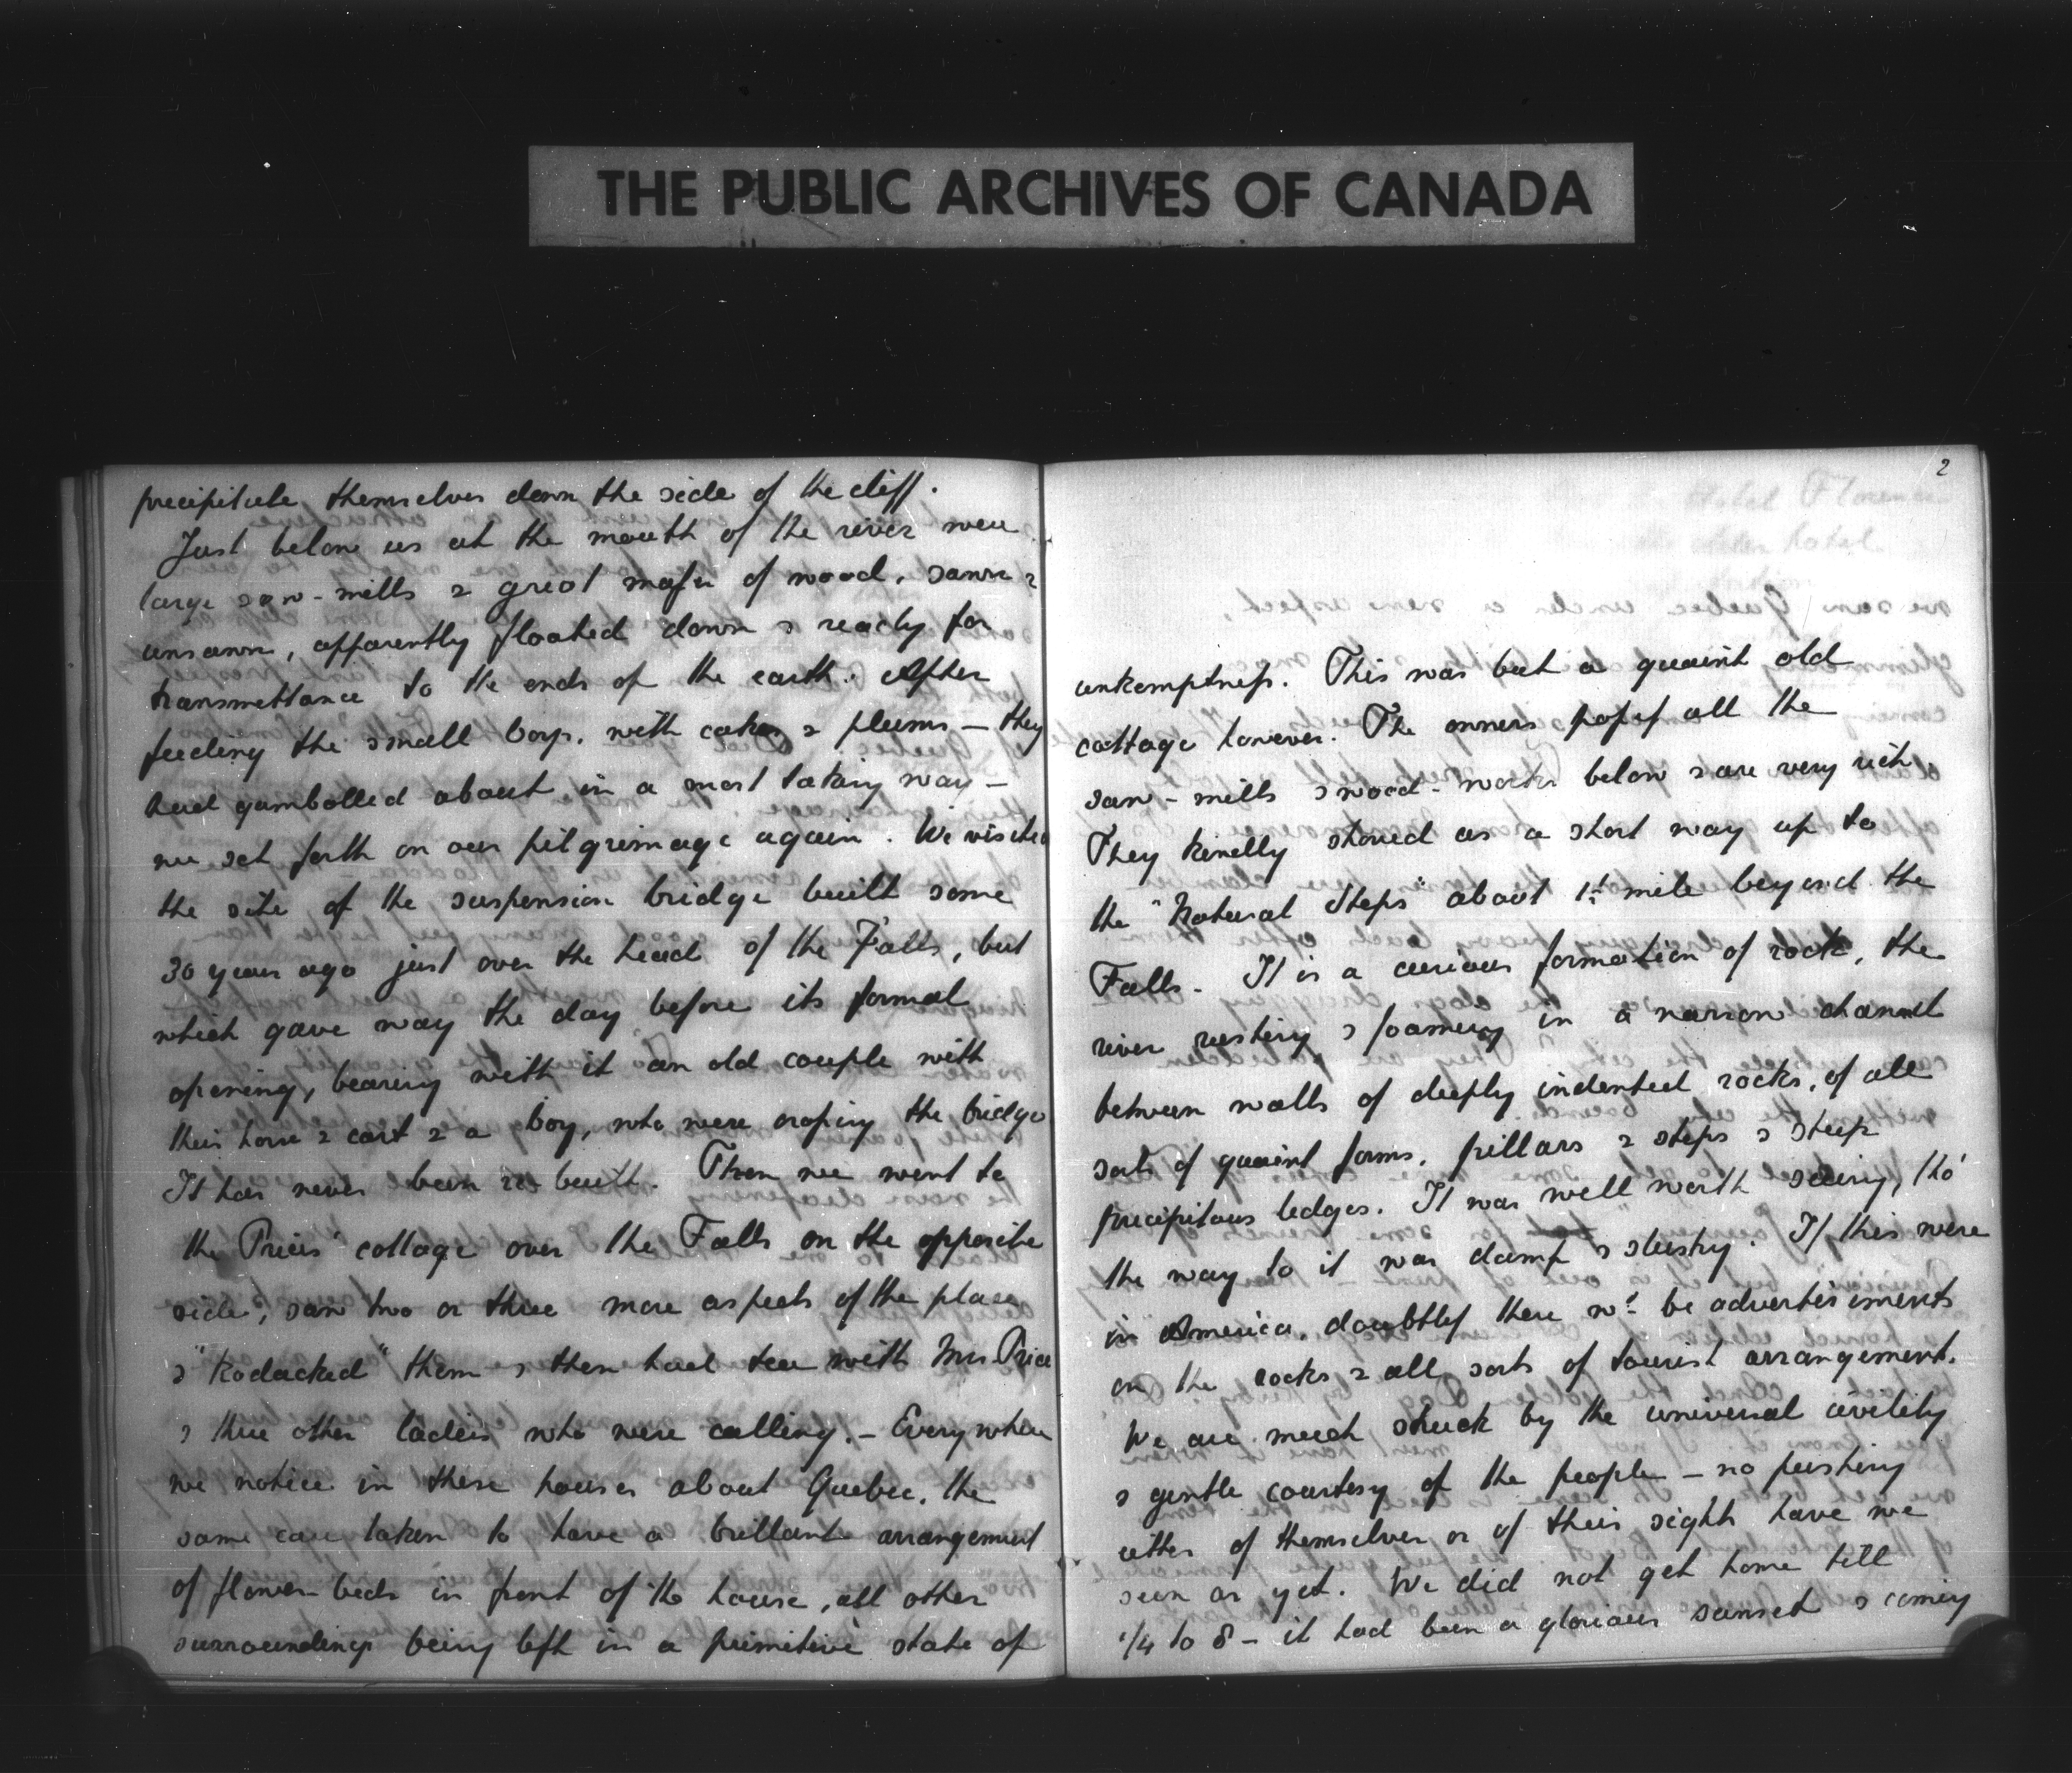 THE PUBLIC ARCHIVES OF CANADA
precipitate themselves down the side of the cliff.
Just below us at the mouth of the river were
large saw-mills & great masses of wood, sawn &
unsawn, apparently floated down & ready for
transmittance to the ends of the earth. After
feeding the small boys, with cakes & plums — they
had gambolled about in a most taking way —
we set forth on our pilgrimage again. We visited
the site of the suspension bridge built some
30 years ago just over the head of the Falls, but
which gave way the day before its formal
opening, bearing with it an old couple with
their horse & cart & a boy, who were crossing the bridge
It has never been re-built. Then we went to
the Prices' cottage over the Falls on the opposite
side, saw two or three more aspects of the place
& "Kodacked" them & then had tea with Mrs Price
& three other ladies who were calling. — Everywhere
we notice in these houses about Quebec, the
same care taken to have a brilliant arrangement
of flower-beds in front of the house, all other
surroundings being left in a primitive state of
2
unkemptness. This was but a quaint old
cottage however. The owners possess all the
saw-mills & wood-works below & are very rich.
They kindly showed us a short way up to
the "Natural Steps" about 1 mile beyond the
Falls. It is a curious formation of rock, the
river rushing & foaming in a narrow channel
between walls of deeply indented rocks, of all
sorts of quaint forms, pillars & steps & steep
precipitous ledges. It was well worth seeing, tho'
the way to it was damp & slushy. If this were
in America, doubtless there wd. be advertisements
on the rocks & all sorts of tourist arrangement.
We are much struck by the universal civility
& gentle courtesy of the people — no pushing
either of themselves or of their sights have we
seen as yet. We did not get home till
1/4 to 8 — it had been a glorious sunset & coming